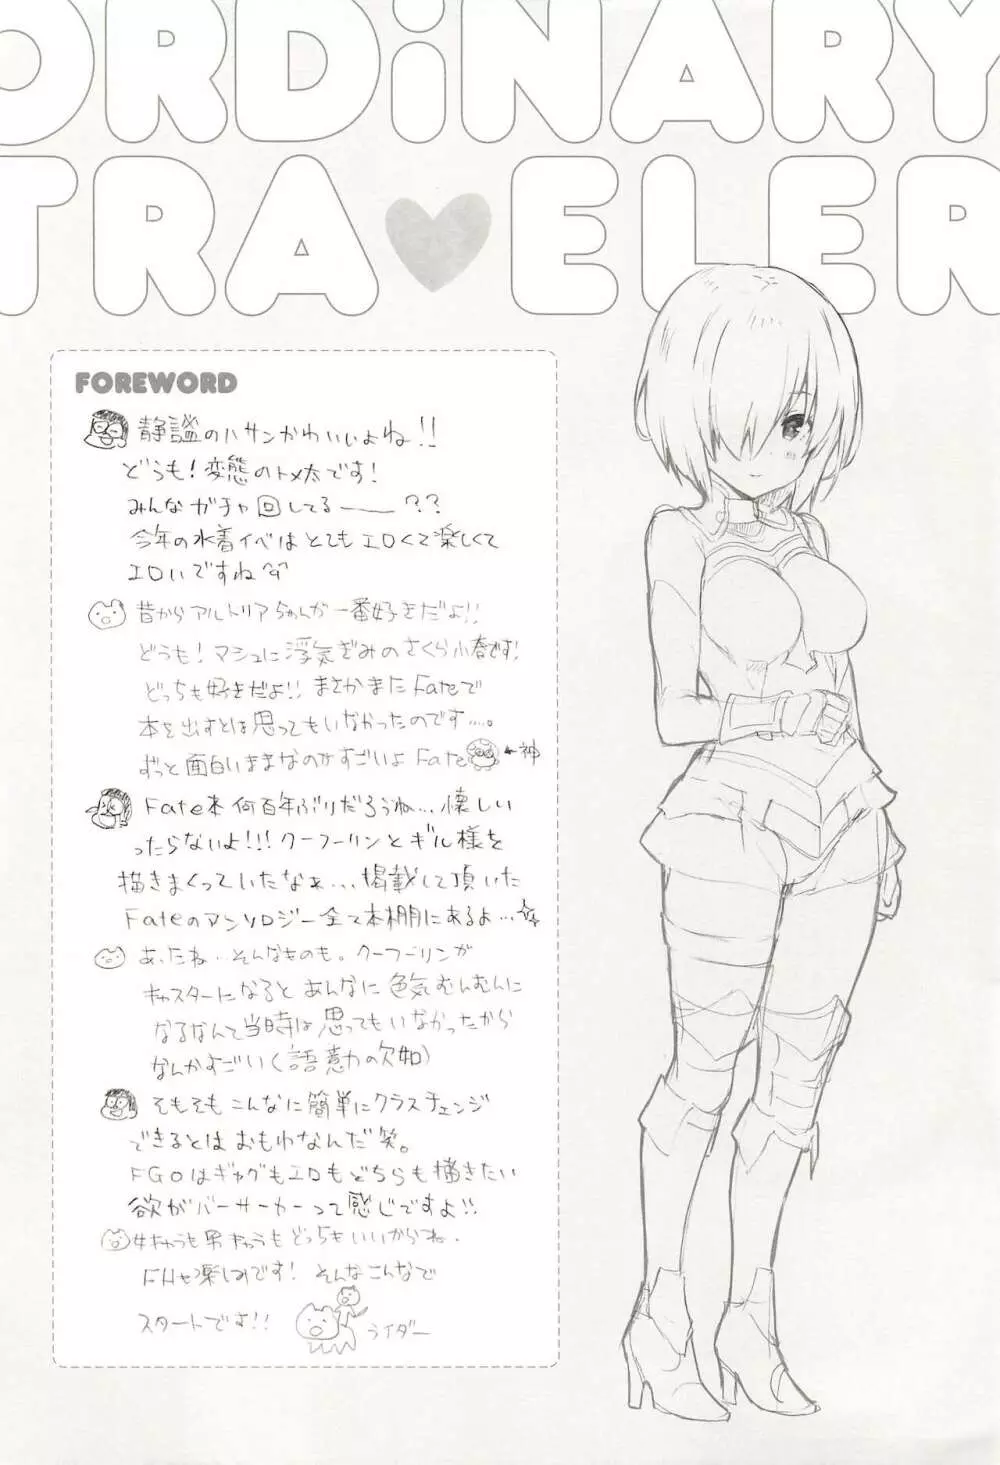 ORDiNARY
TRA♥ELER
FOREWORD
静謐のハサンかわいいよね!!
どうも!変態のトメ太です!
みんなガチャ回してる――??
今年の水着イベはとてもエロくて楽しくて
エロいですね
昔からアルトリアちゃんが一番好きだよ!!
どうも!マシュに浮気ぎみのさくら小春です!
どっちも好きだよ!!まさかまたFateで
本を出すとは思ってもいなかったのです....。
ずっと面白いままなのがすごいよFate ←神
Fate本何百年ぶりだろうね...懐しい
ったらないよ!!!クーフーリンとギル様を
描きまくっていたなぁ...掲載して頂いた
Fateのアンソロジー全て本棚にあるよ...☆
あったね...そんなものも。クーフーリンが
キャスターになるとあんなに色気むんむんに
なるなんて当時は思ってもいなかったから
なんかすごい(語意力の欠如)
そもそもこんなに簡単にクラスチェンジ
できるとはおもわなんだ笑。
FGOはギャグもエロもどちらも描きたい
欲がバーサーカーって感じですよ!!
女キャラも男キャラもどっちもいいからね.
楽しみです!そんなこんなで
スタートです!!
ライダー